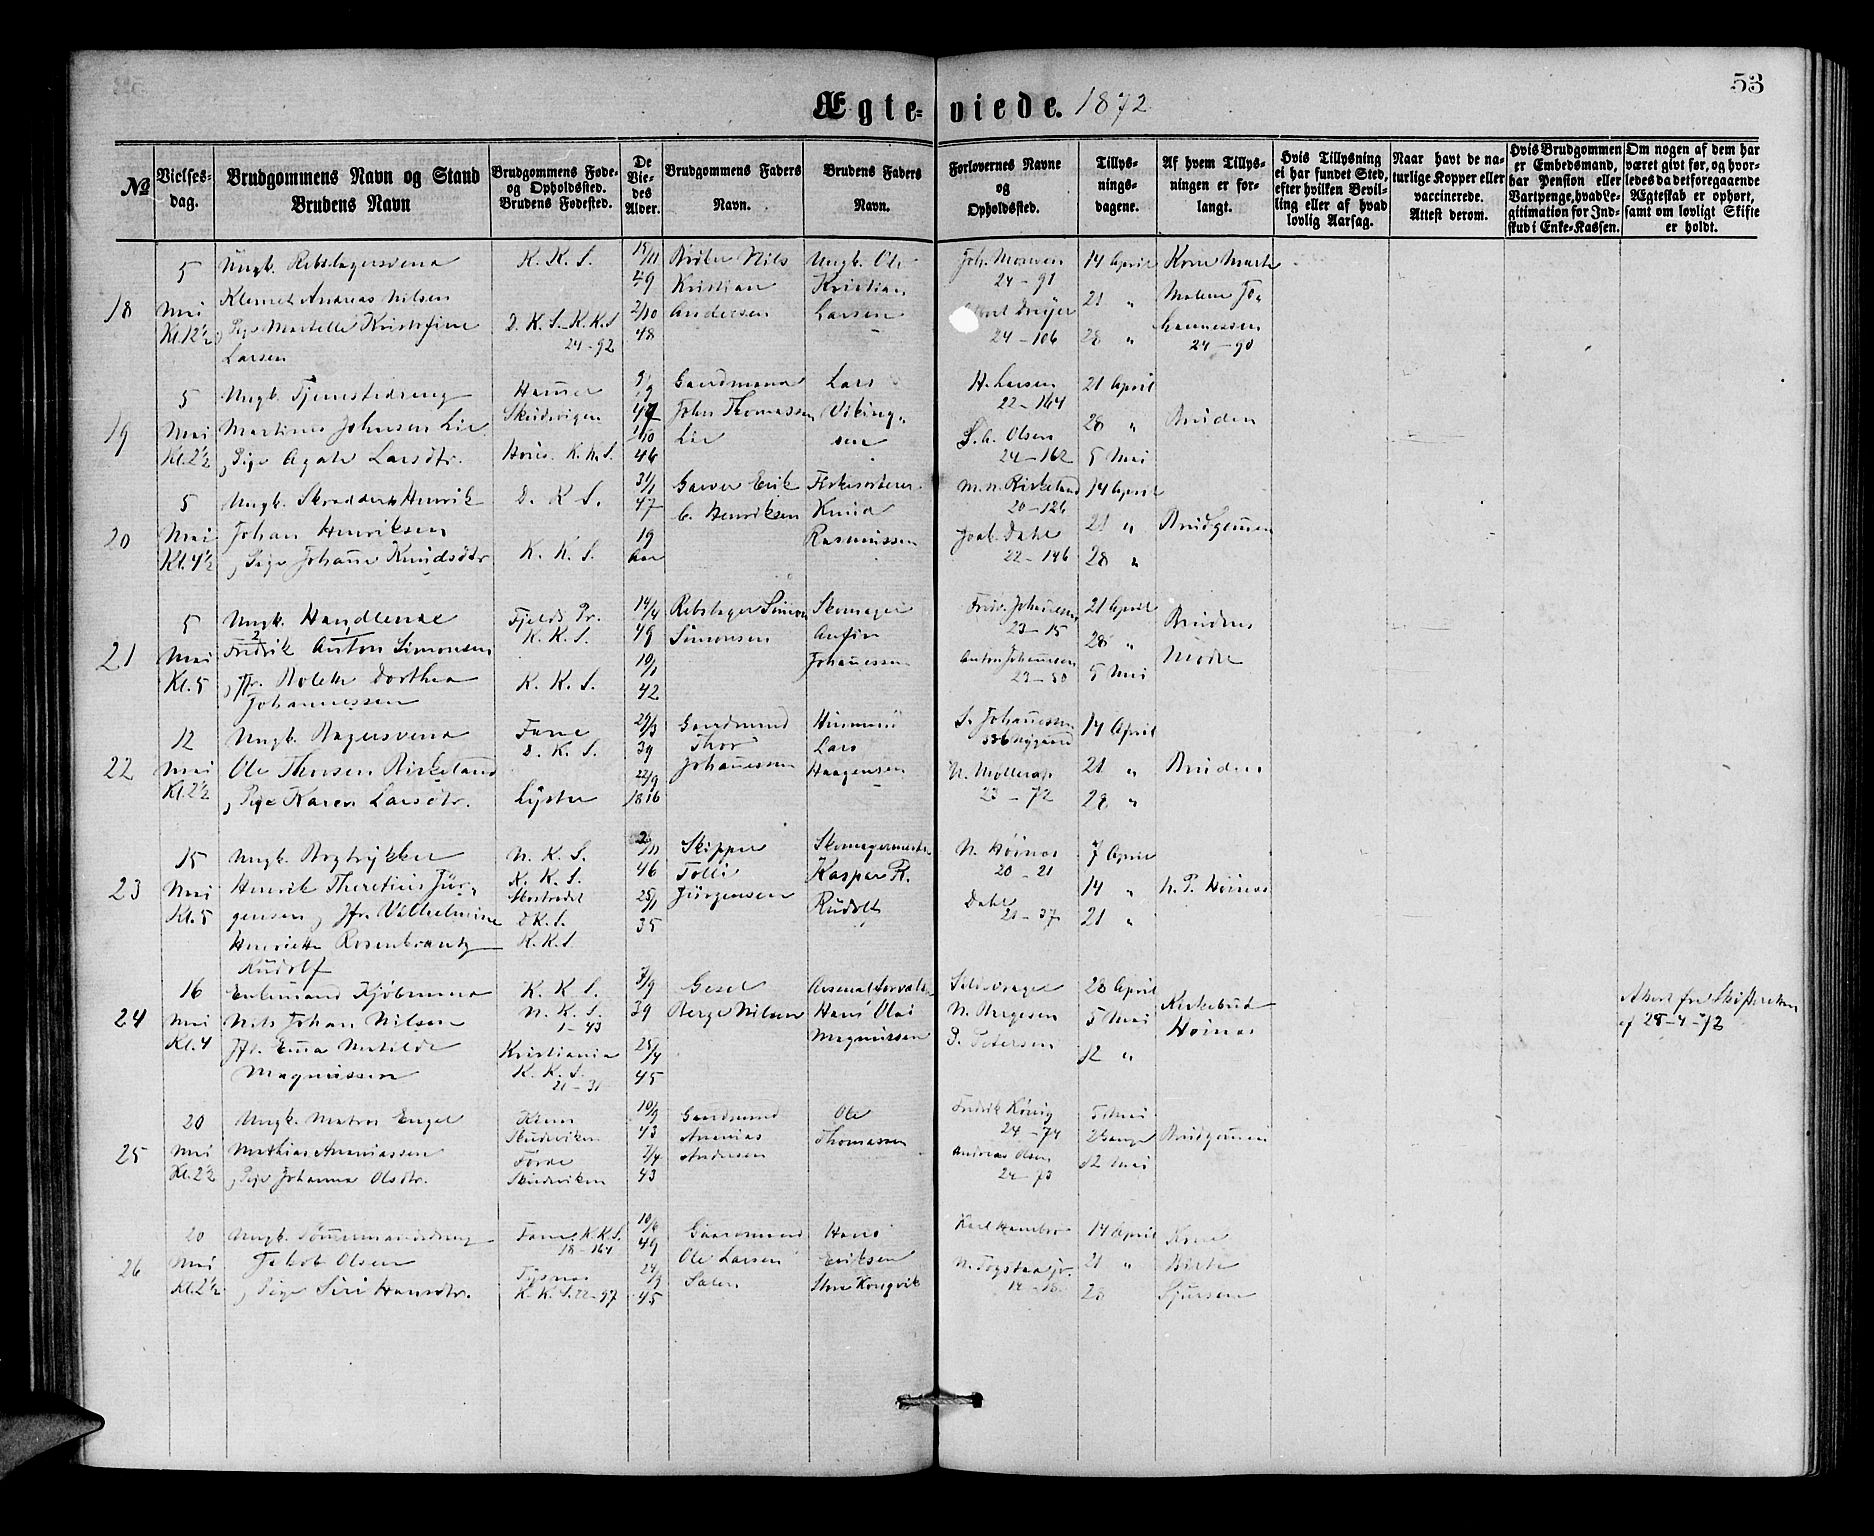 53
Ægte-viede. 1872
№
Vielses-dag.
Brudgommens Navn og Stand
Brudens Navn
Brudgommens Føde- og Opholdssted.
Brudens Fødested.
De Vie-des Alder.
Brudgommens Faders Navn.
Brudens Faders Navn.
Forlovernes Navne og Opholdssted.
Tillys-nings-dagene.
Af hvem Tillys-ningen er for-langt.
Hvis Tillysning ei har fundet Sted, efter hvilken Bevil-ling eller af hvad lovlig Aarsag.
Naar havt de na-turlige Kopper eller vaccinerede. Attest derom.
Hvis Brudgommen er Embedsmand, har Pension eller Vartpenge, hvad Le-gitimation for Ind-skud i Enke-Kassen.
Om nogen af dem har været givt før, og hvor-ledes da det foregaaende Ægteskab er ophørt, samt om lovligt Skifte er holdt.
18
5 Mai Kl. 12½
Ungk. Rebslagersvend
Klemet Andreas Nilsen
, Pige Martelle Kristofine
Larsen
K. K. S.
D. K. S. K. K. S
24-92
15/11 49
2/10 48
Nils Kristian Andersen
Ungk. Ole Kristian Larsen
Joh. Monsen
24-91
Dreyer
24-106
14 April
21 "
28 "
Kone Marte Malene Johannessen
24-90
19
5 Mai Kl. 2½
Ungk. Tjenestedreng
Martines Johnsen Lie
, Pige Agate Larsdtr.
Hammer
Skudevigen
K. K. S.
47
1/10 46
Gaardmand John Thomassen Lie
Lars Vikingsen
H. Larsen
22-164
S. A. Olsen
24-162
21 April
28 "
5 Mai
Bruden
20
5 Mai Kl. 4½
Ungk. Skrædder Henrik
Johan Henriksen
, Pige Johanne Knudsdtr
D. K. S.
K. K. S.
31/1 47
19 Aar
Garver Erik C. Henriksen
Knud Rasmussen
M. N. Birkeland
20-126
Joab. Dahl
22-146
14 April
21 "
28 "
Brudgommen
21
5 Mai Kl. 5
Ungk. Handlende
Fredrik Anton Simonsen
, Jfr. Bolette Dorthea
Johannessen
Fjelds Pr.
K. K. S.
K. K. S.
14/4 49
10/1 42
Rebslager Simon Simonsen
Skomager Anfin Johannessen
Fred. Johannessen
23-15
Anton Johannessen
23-50
21 April
28 "
5 Mai
Brudens Moder
22
12 Mai Kl. 2½
Ungk. Bagersvend
Ole Thorsen Birkeland
, Pige Karen Larsdtr.
Fane
D. K. S.
Lyster
29/3 39
22/9 1816
Gaardmand Thor Johannessen
Husmand Lars Haagensen
S. Johannessen
536 Nygaard
N. Møllerop
23-72
14 April
21 "
28 "
Bruden
23
15 Mai Kl. 5
Ungk. Bogtrykker
Henrik Theretius Jür-
gensen, Jfr. Vilhelmine
Henriette Rosenkrantz
Rudolf
N. K. S.
K. K. S.
Strædet
D K. S.
K. K. S.
2/11 46
25/1 35
Skipper Tolli Jürgensen
Skomagermester Kaspar R. Rudolf
N. Høinæs
20-21
Dahl
21-37
7 April
14 "
21 "
N. P. Høinæs
24
16 Mai Kl. 4
Enkemand Kjøbmand
Nils Johan Nilsen
Jfr. Emma Matilde
Magnussen
K. K. S.
N. K. S.
1-43
Kristiania
K. K. S.
21-31
7/9 39
25/4 45
Berge Nilsen
Arsenalforvalter Hans Olai Magnussen
N. Bergesen
P. Petersen
28 April
5 Mai
12 "
Kirkebud Høinæs
Attest fra Skifteretten
af 28-4-72
25
20 Mai Kl. 2½
Ungk. Matros Engel
Mathias Ananiassen
, Pige Johanna Olsdtr.
Skudeviken
Førde
Skudeviken
10/9 43
7/4 43
Gaardmand Ananias Andersen
Ole Thomassen
Fredrik König
24-74
Andreas Olsen
24-73
5 Mai
12 Mai
Brudgommen
26
20 Mai Kl. 2½
Ungk. Tømmermandsdreng
Jakob Olsen
, Pige Siri Hansdtr.
Fane, K. K. S.
18-164
Tysnæs
K. K. S. 22-97
10/6 49
24/9 45
Gaardmand Ole Larsen Sælen
Hans Eriksen Store Kongsvik
Karl Hambro
N. Togstad jr.
14 April
21 "
28
Kone Birte Sjursen